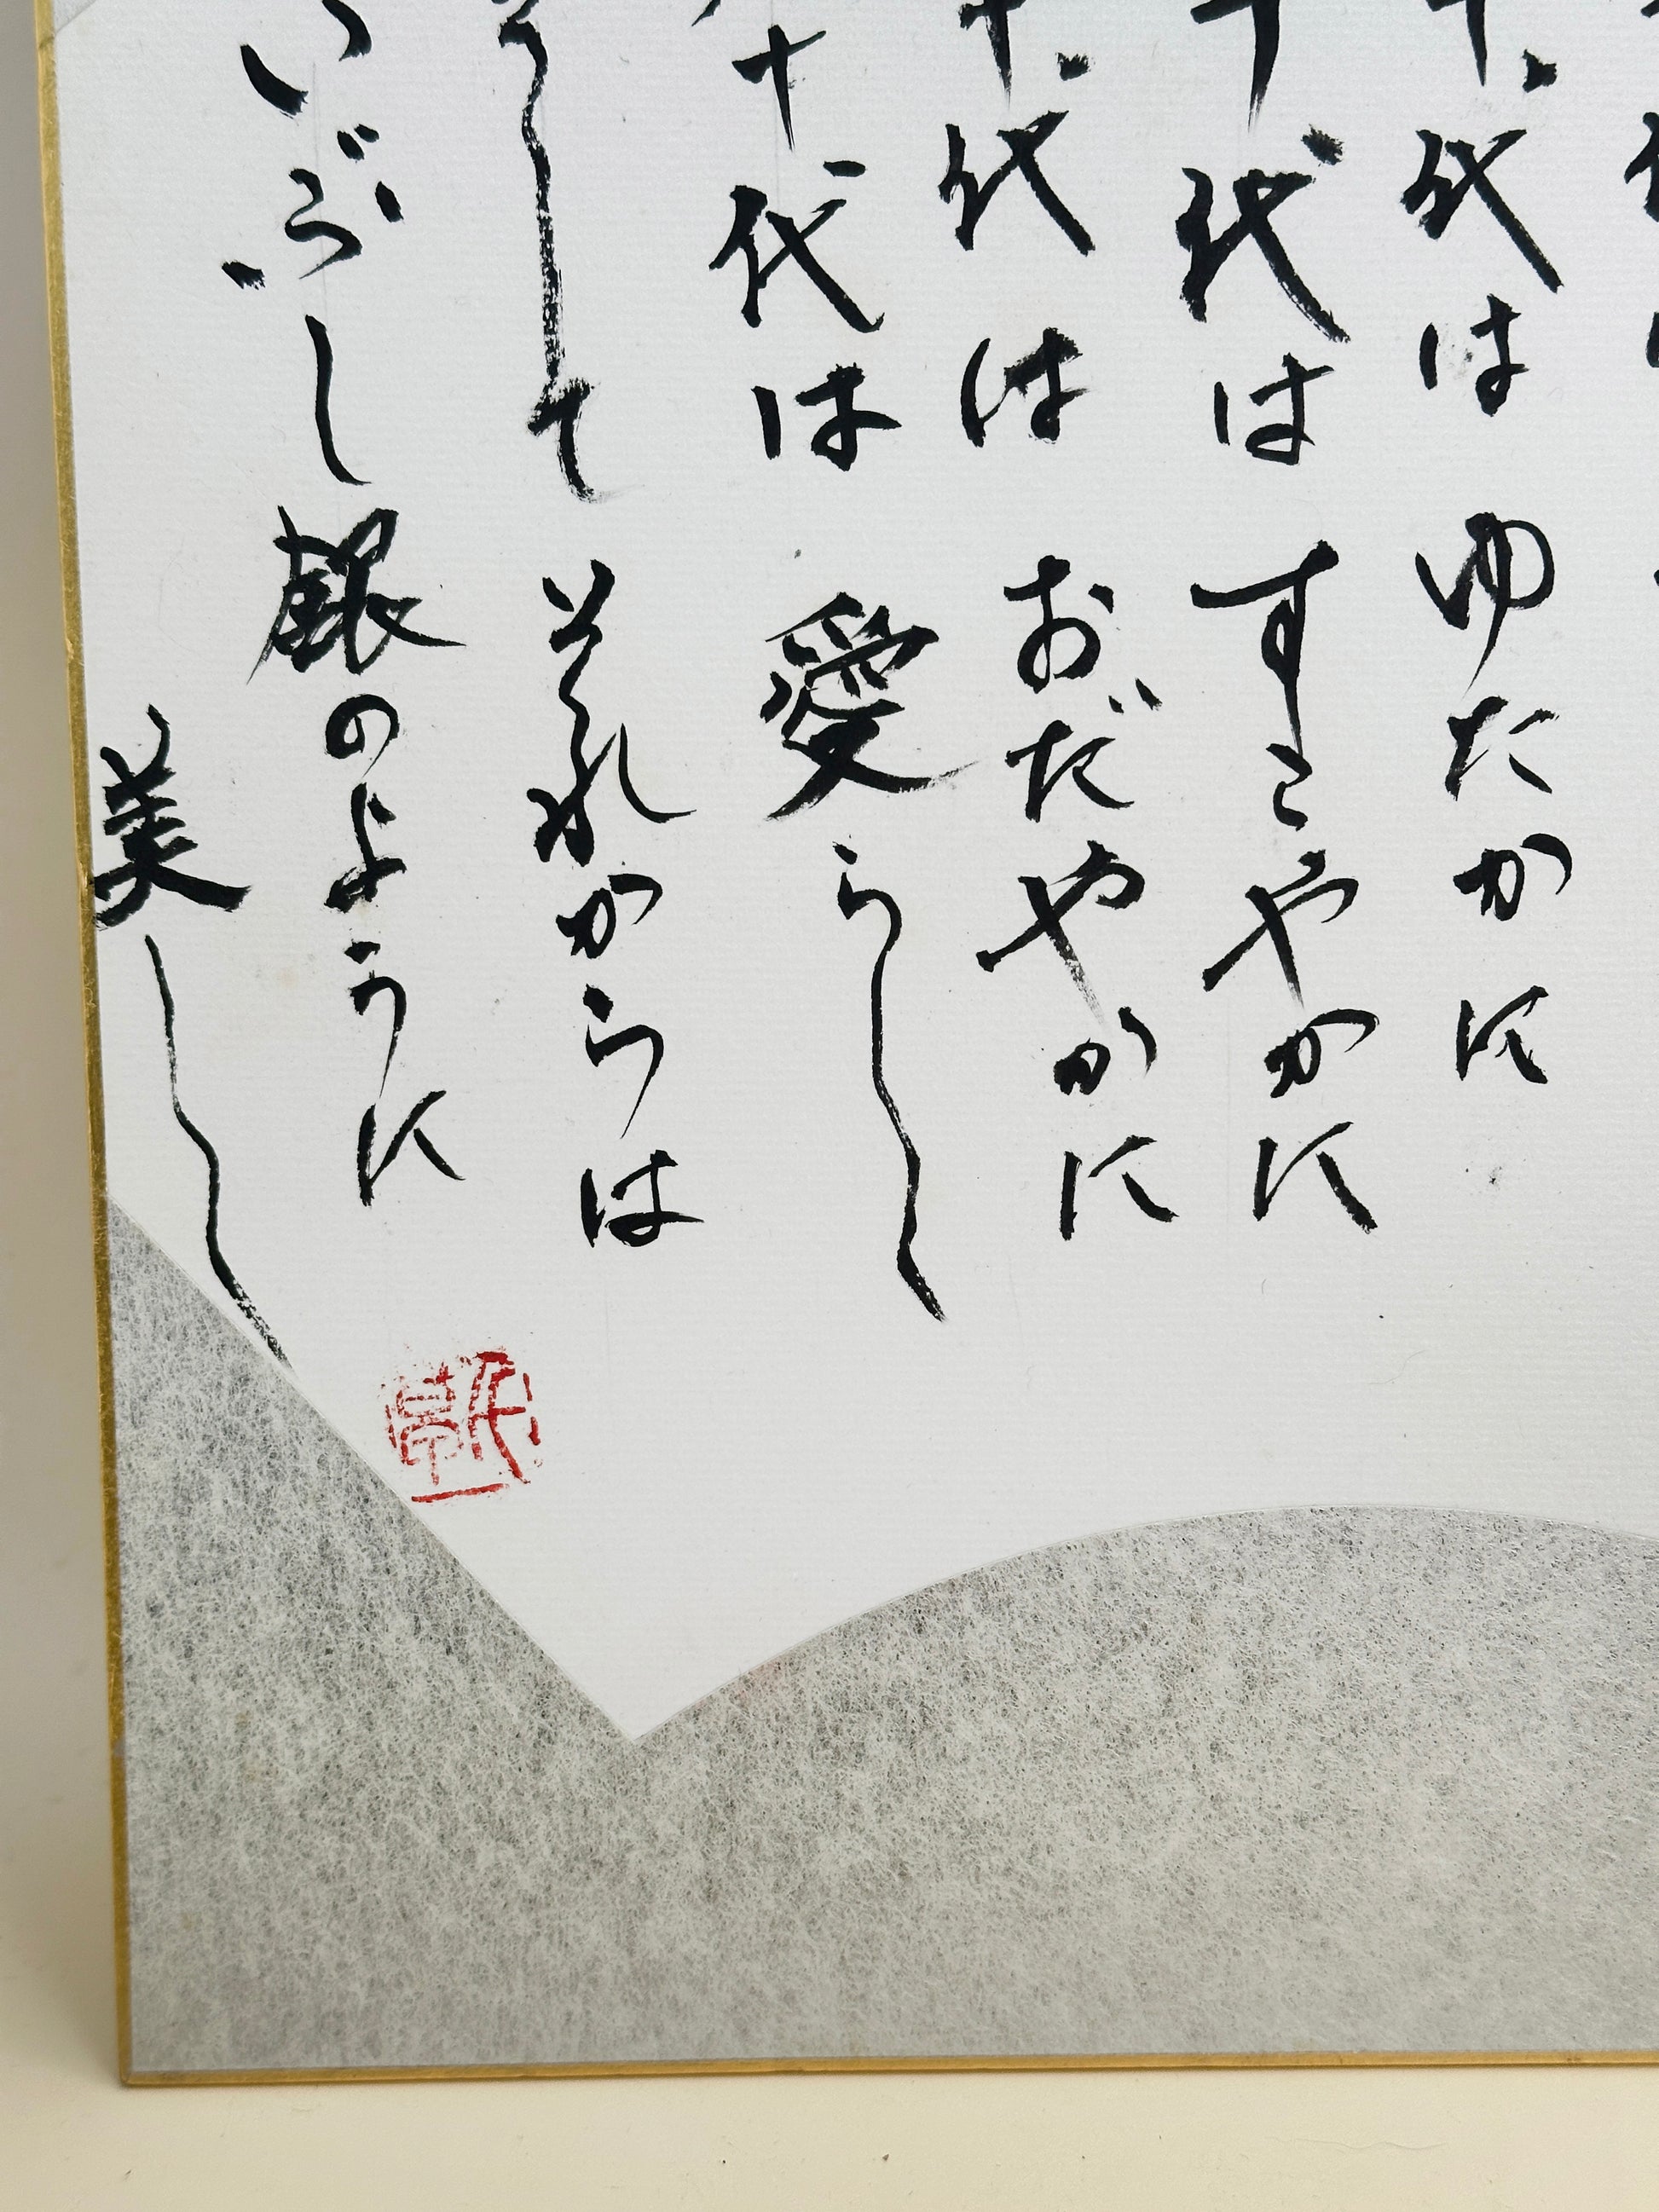 十代は ゆたかに
十代は すこやかに
十代は おだやかに
十代は 愛らしく
そして それからは
いぶし銀のように
美しく